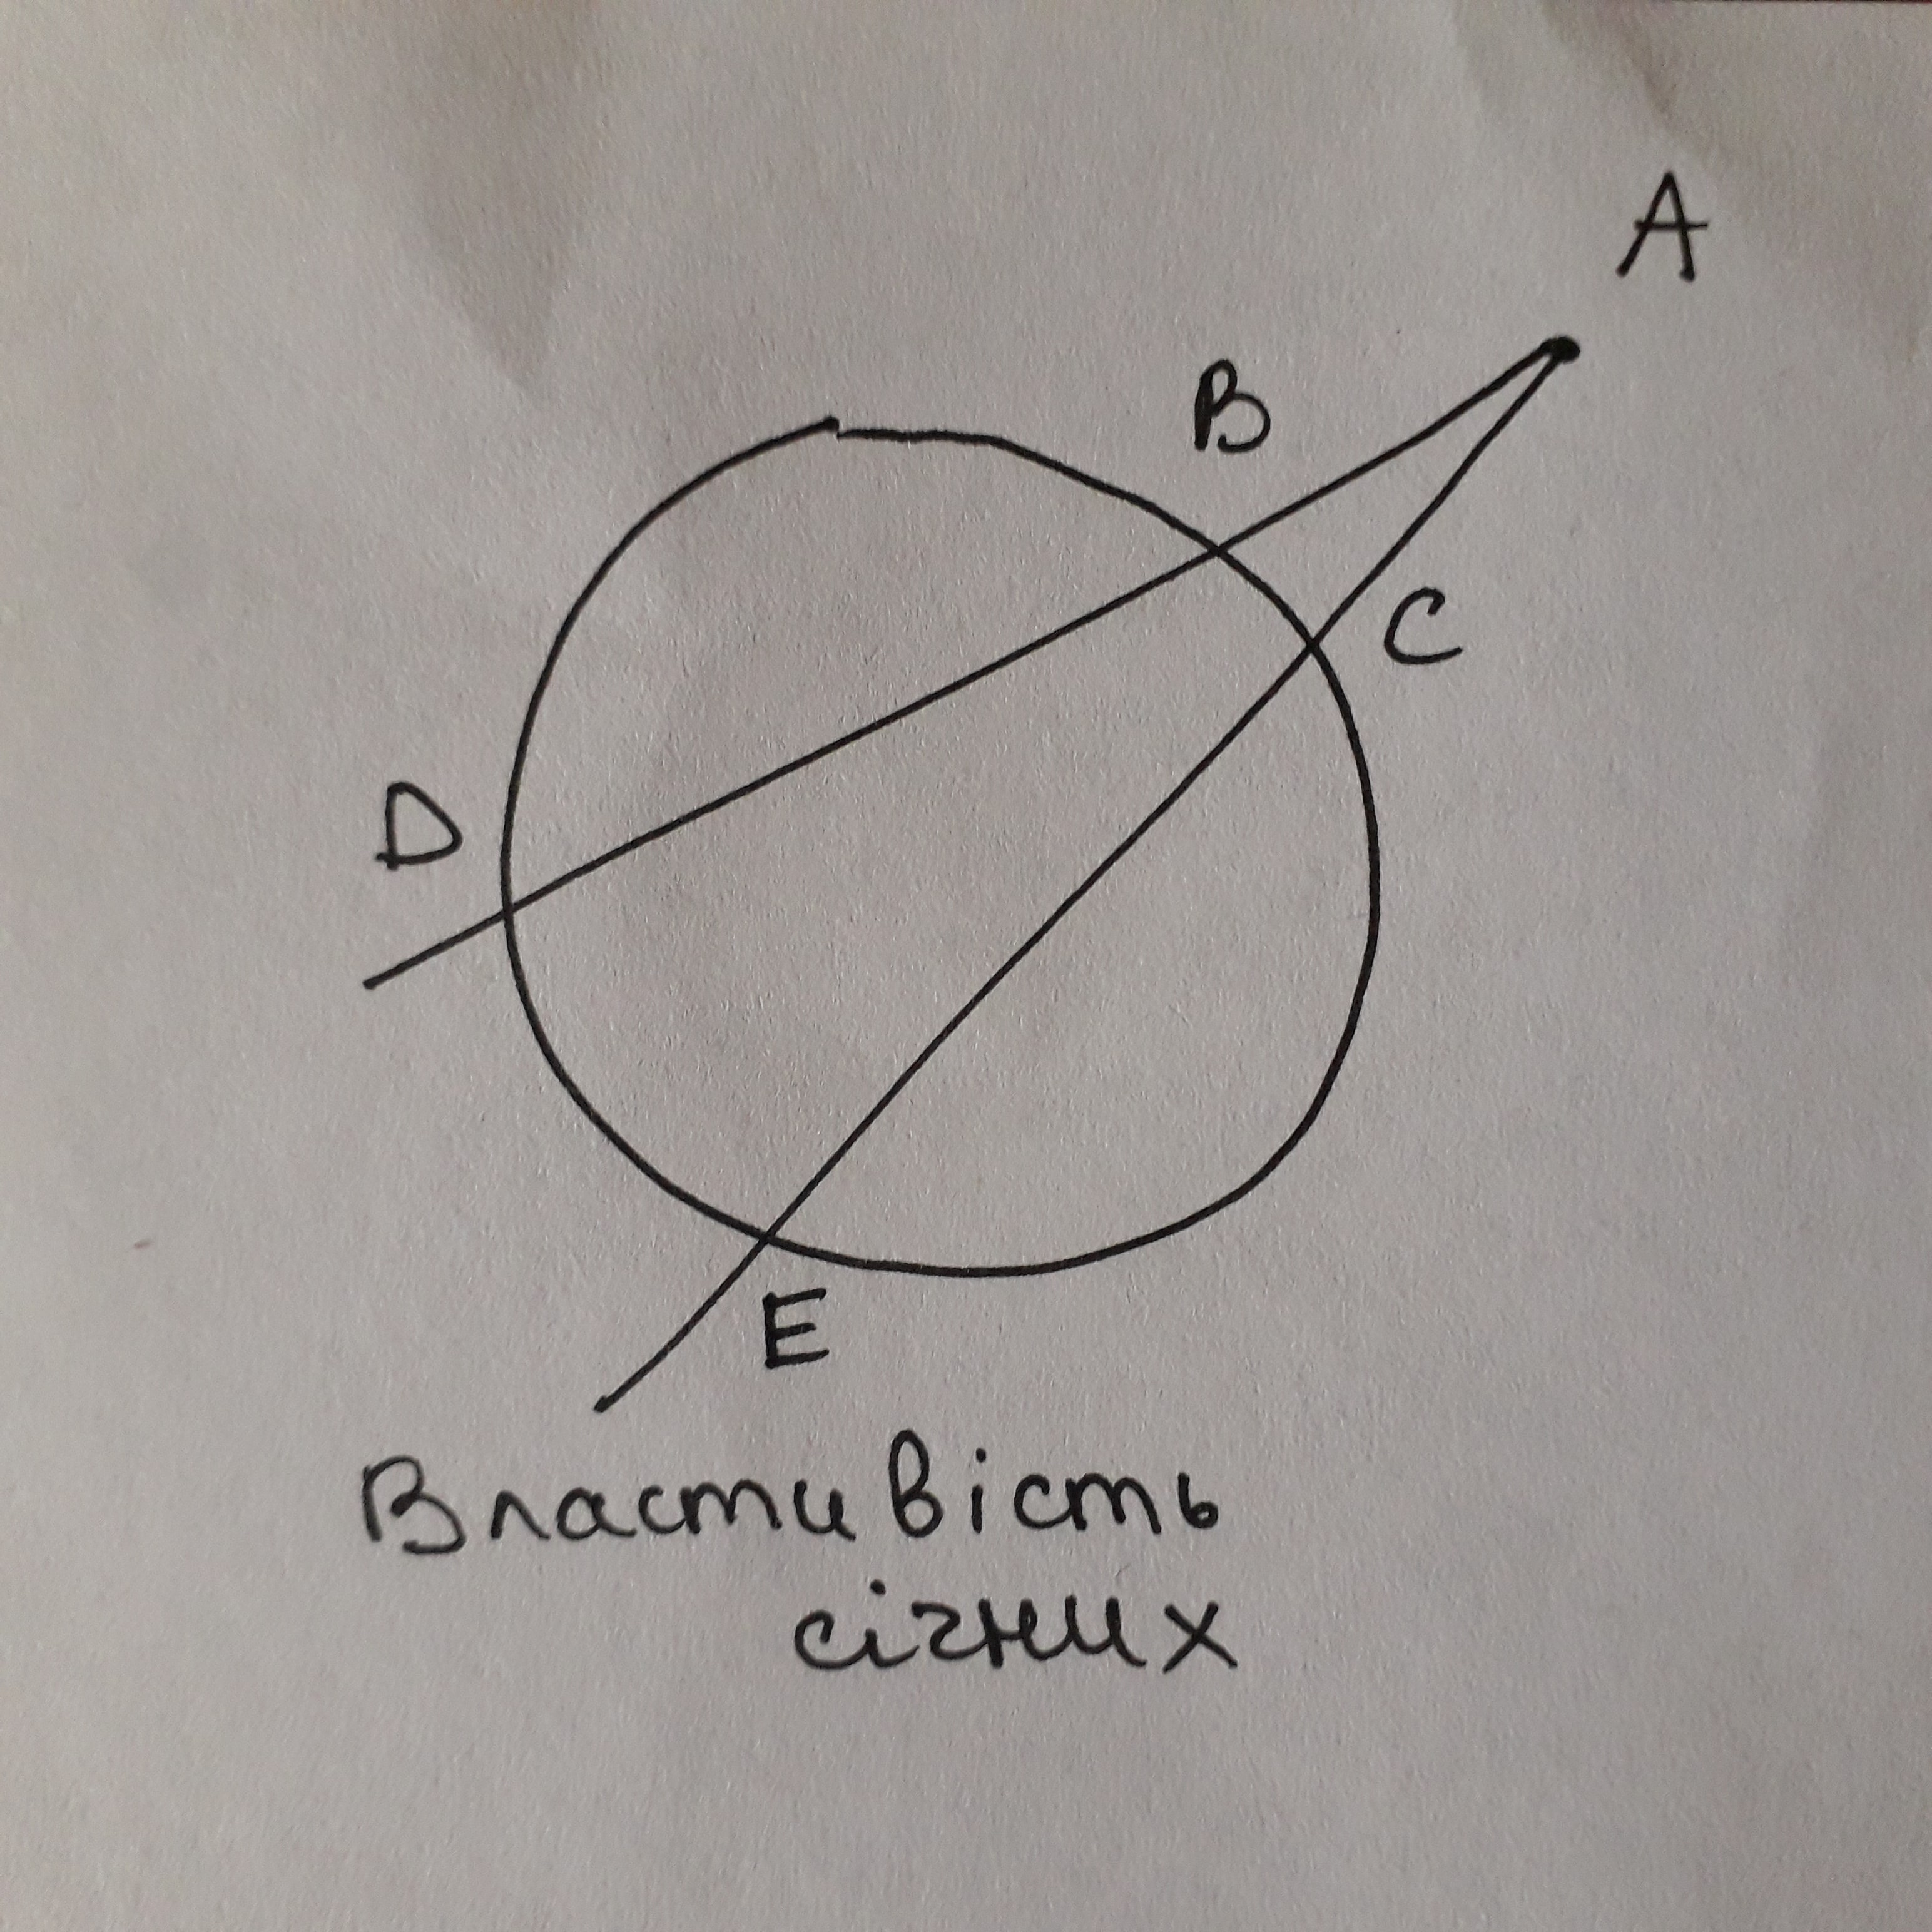 A
B
C
D
E
Властивість
січних